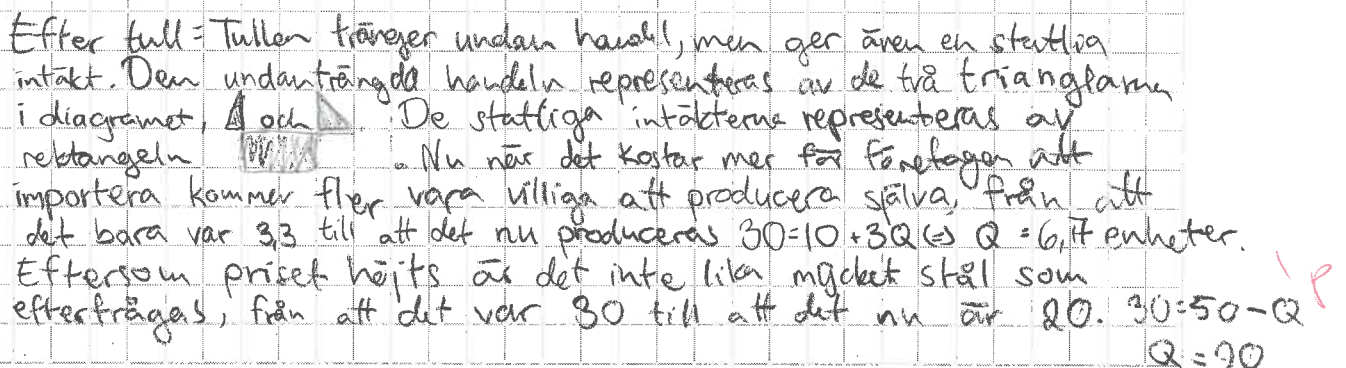 Efter tull = Tullen tränger undan handel, men ger även en statlig
intäkt. Den undanträngda handeln representeras av de två trianglarna
i diagramet, och . De statliga intäkterna representeras av
rektangeln . Nu när det kostar mer för företagen att
importera kommer fler vara villiga att producera själva, från att
det bara var 3,3 till att det nu produceras 30=10+3Q(=) Q = 6,17 enheter.
Eftersom priset höjts är det inte lika mycket stål som
efterfrågas, från att det var 30 till att det nu är 20. 30=50-Q
Q = 20